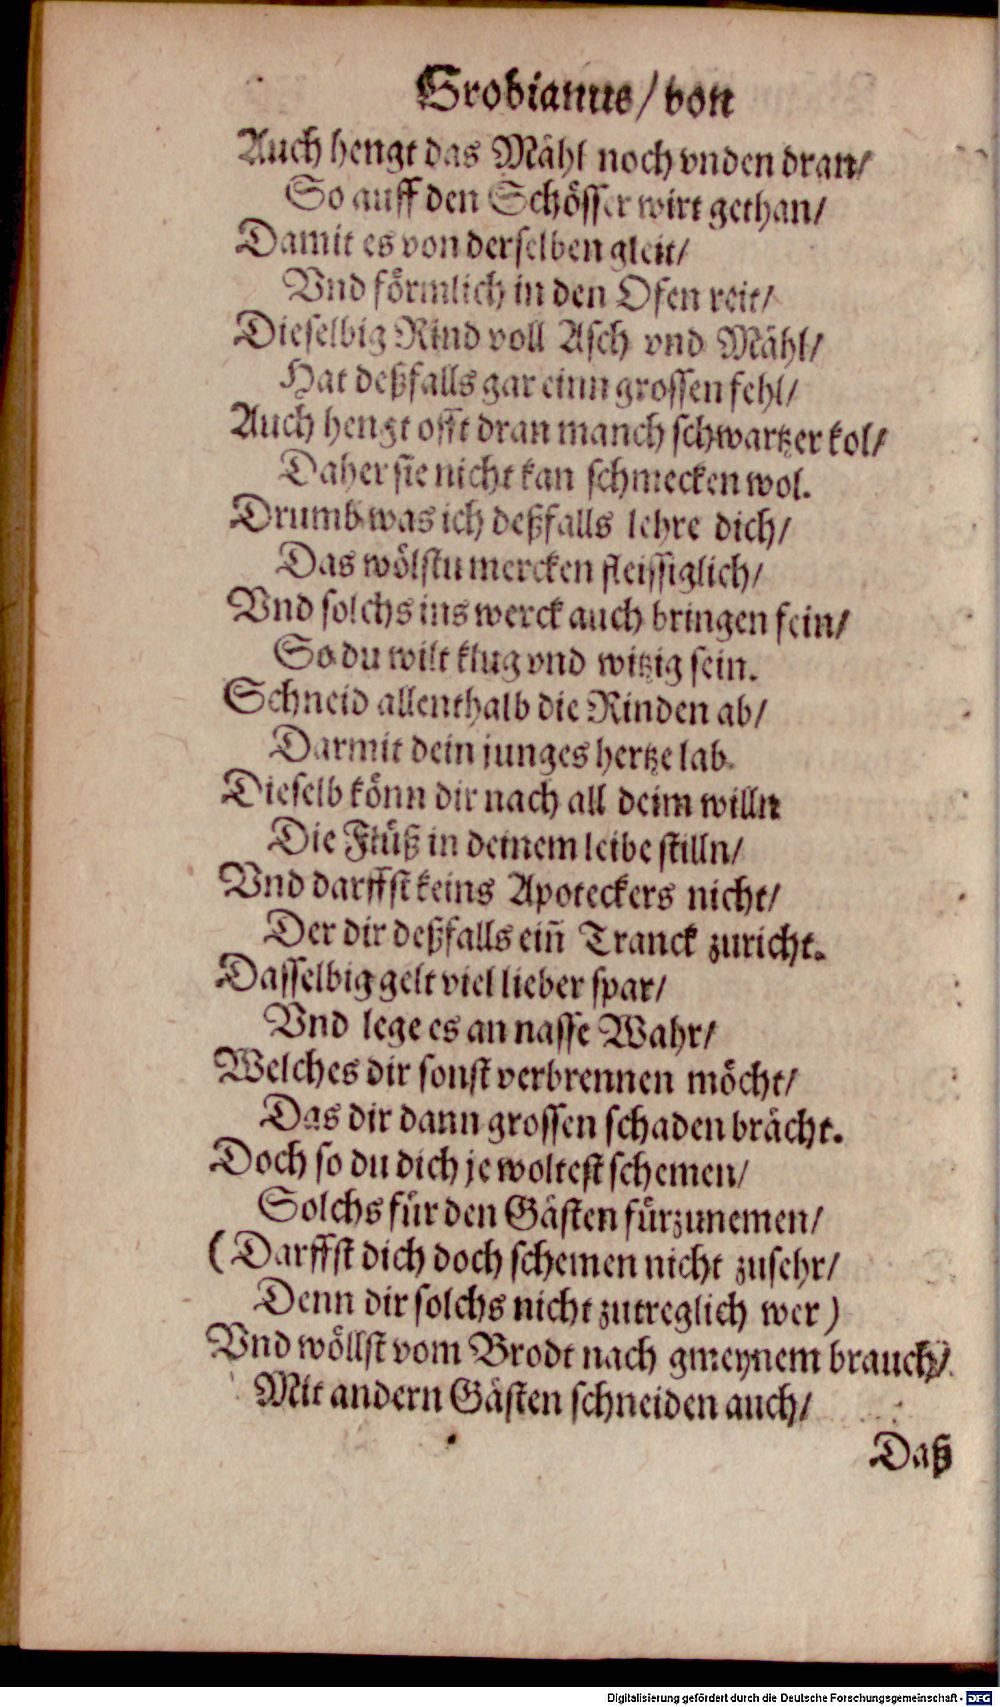 Grobianus/ von
Auch hengt das Mähl noch vnden dran/
So auff den Schösser wirt gethan/
Damit es von derselben gleit/
Vnd förmlich in den Ofen reit/
Dieselbig Rind voll Asch vnd Mähl/
Hat deßfalls gar einn grossen fehl/
Auch hengt offt dran manch schwartzer kol/
Daher sie nicht kan schmecken wol.
Drumb was ich deßfalls lehre dich/
Das wölstu mercken fleissiglich/
Vnd solchs ins werck auch bringen fein/
So du wilt klug vnd witzig sein.
Schneid allenthalb die Rinden ab/
Darmit dein junges hertze lab.
Dieselb könn dir nach all deim willn
Die Flüß in deinem leibe stilln/
Vnd darffst keins Apoteckers nicht/
Der dir deßfalls ein̄ Tranck zuricht.
Dasselbig gelt viel lieber spar/
Vnd lege es an nasse Wahr/
Welches dir sonst verbrennen möcht/
Das dir dann grossen schaden brächt.
Doch so du dich je woltest schemen/
Solchs für den Gästen fürzunemen/
(Darffst dich doch schemen nicht zusehr/
Denn dir solchs nicht zutreglich wer)
Vnd wöllst vom Brodt nach gmeynem brauch/
Mit andern Gästen schneiden auch/
Daß
Digitalisierung gefördert durch die Deutsche Forschungsgemeinschaft - DFG